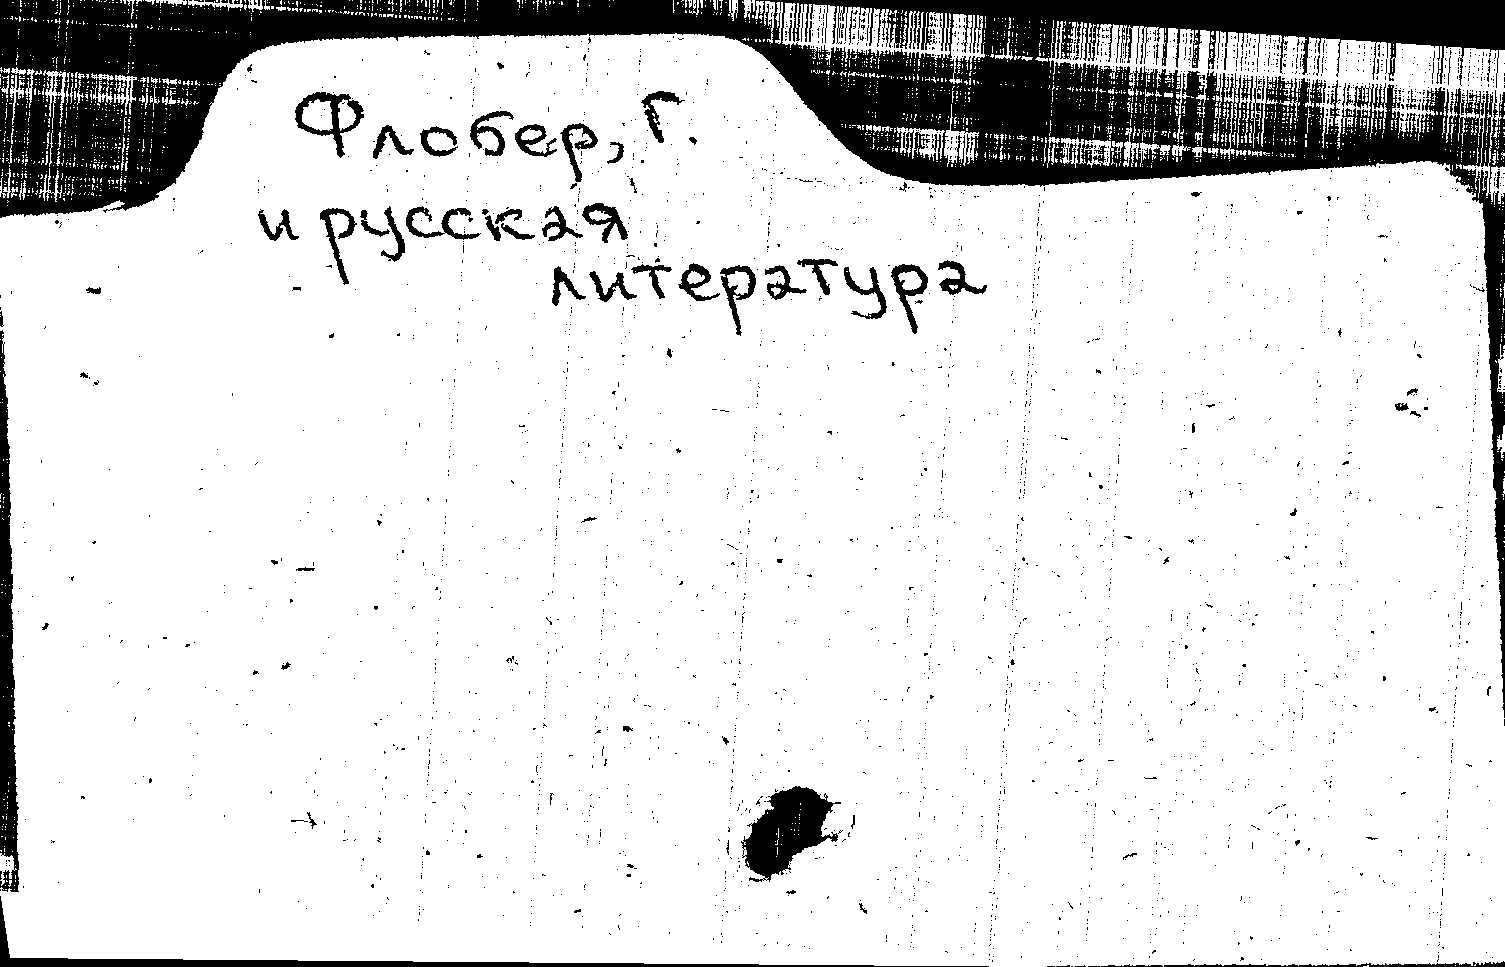 Флобер, Г.
и русская
литература